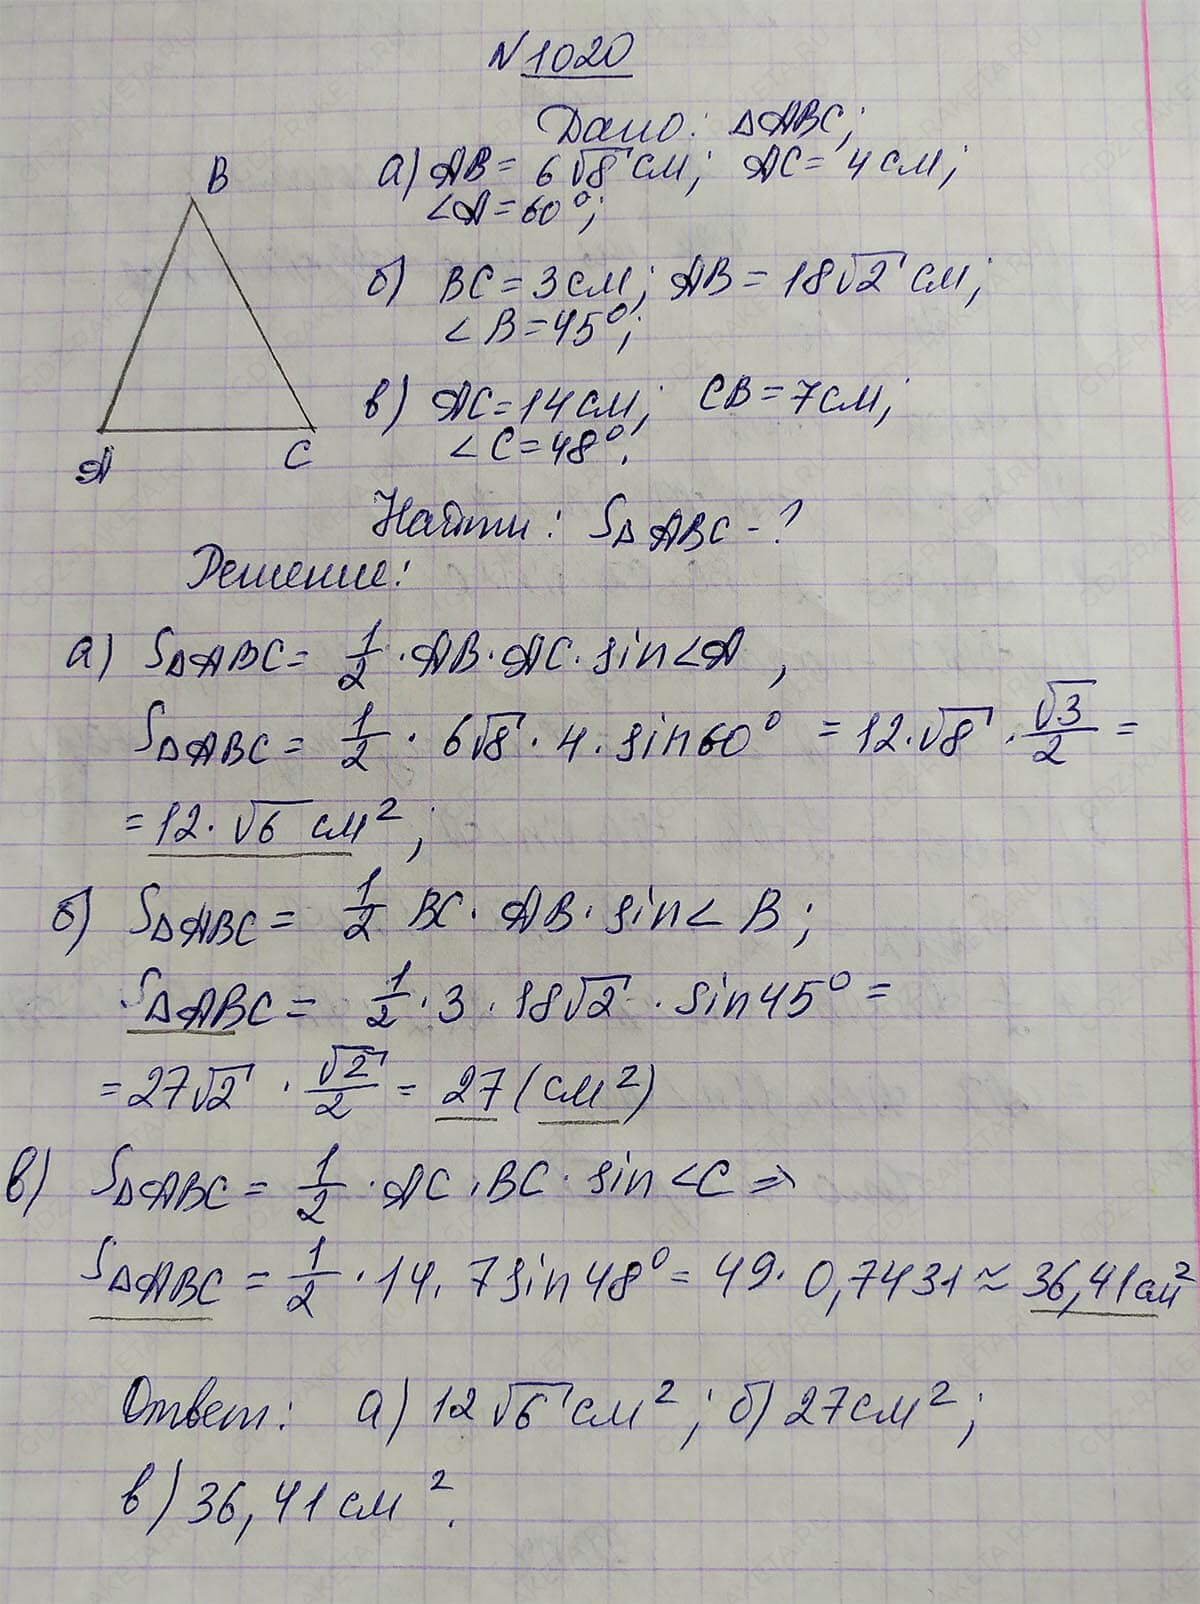 N 1020
Дано: △ABC;
а) AB = 6√8 см; AC = 4 см;
∠A = 60°;
б) BC = 3 см; AB = 18√2 см;
∠B = 45°;
в) AC = 14 см; CB = 7 см;
∠C = 48°.
B
A
C
Найти: S△ABC - ?
Решение:
а) S△ABC = 1/2 · AB · AC · sin∠A,
S△ABC = 1/2 · 6√8 · 4 · sin60° = 12 · √8 · √3/2 =
= 12 · √6 см²;
б) S△ABC = 1/2 BC · AB · sin∠B;
S△ABC = 1/2 · 3 · 18√2 · sin45° =
= 27√2 · √2/2 = 27 (см²)
в) S△ABC = 1/2 · AC · BC · sin∠C ⇒
S△ABC = 1/2 · 14 · 7 sin48° = 49 · 0,7431 ≈ 36,41 см²
Ответ: а) 12√6 см²; б) 27 см²;
в) 36,41 см².